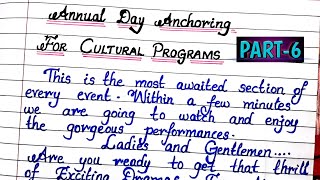 Annual Day Anchoring
For Cultural Programs PART-6
This is the most awaited section of
every event. Within a few minutes
we are going to watch and enjoy
the gorgeous performances.
Ladies and Gentlemen....
Are you ready to get that thrill
of Exciting Dramas,